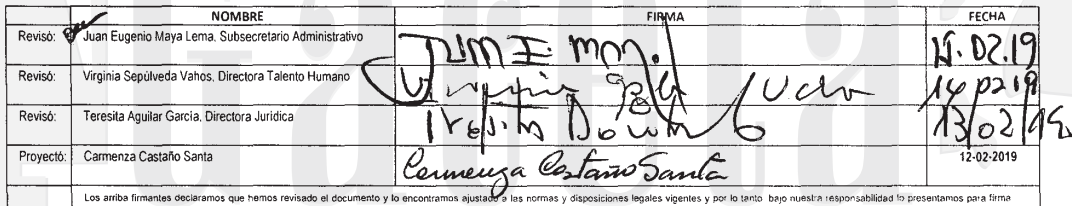 NOMBRE FIRMA FECHA
Revisó: Juan Eugenio Maya Lema. Subsecretario Administrativo
Revisó: Virginia Sepúlveda Vahos, Directora Talento Humano 14 02 19
Revisó: Teresita Aguilar García, Directora Jurídica 13/02/19
Proyectó: Carmenza Castaño Santa Carmenza Castaño Santa 12-02-2019
Los arriba firmantes declaramos que hemos revisado el documento y lo encontramos ajustado a las normas y disposiciones legales vigentes y por lo tanto bajo nuestra responsabilidad lo presentamos para firma